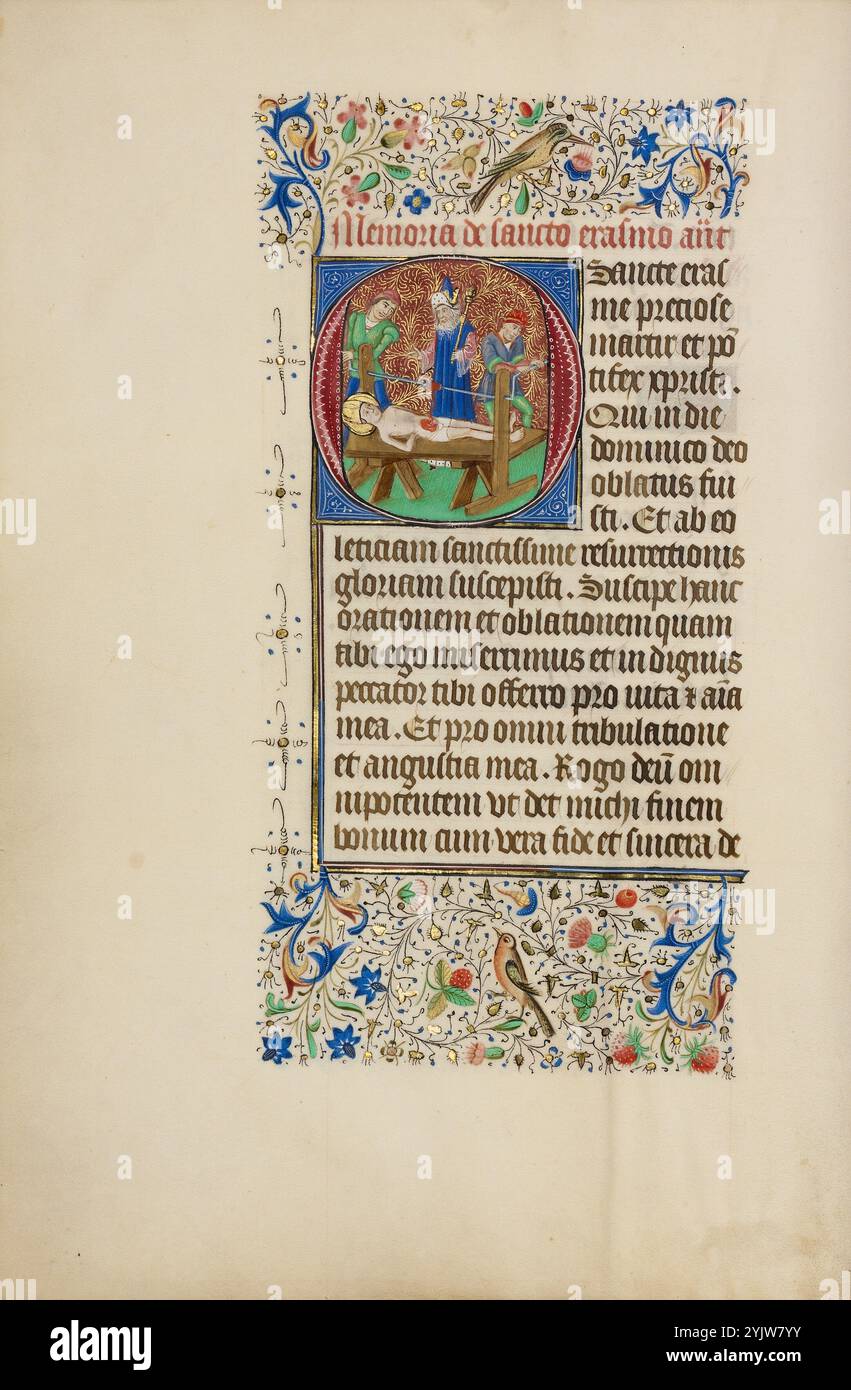 Memoria de sancto erasmo añt
Sancte eras
me preciose
martir et põ
tifex xp̄i ista.
Qui in die
dominico deo
oblatus fui
sti. Et ab eo
leticiam sanctissime resurrectionis
gloriam suscepisti. Suscipe hanc
orationem et oblationem quam
tibi ego miserrimus et indignus
peccator tibi offerro pro uita ⁊ aĩa
mea. Et pro omni tribulatione
et angustia mea. Rogo deũ om
nipotentem vt det michi finem
bonum cum vera fide et sincera de
alamy
Image ID: 2YJW7YY
www.alamy.com